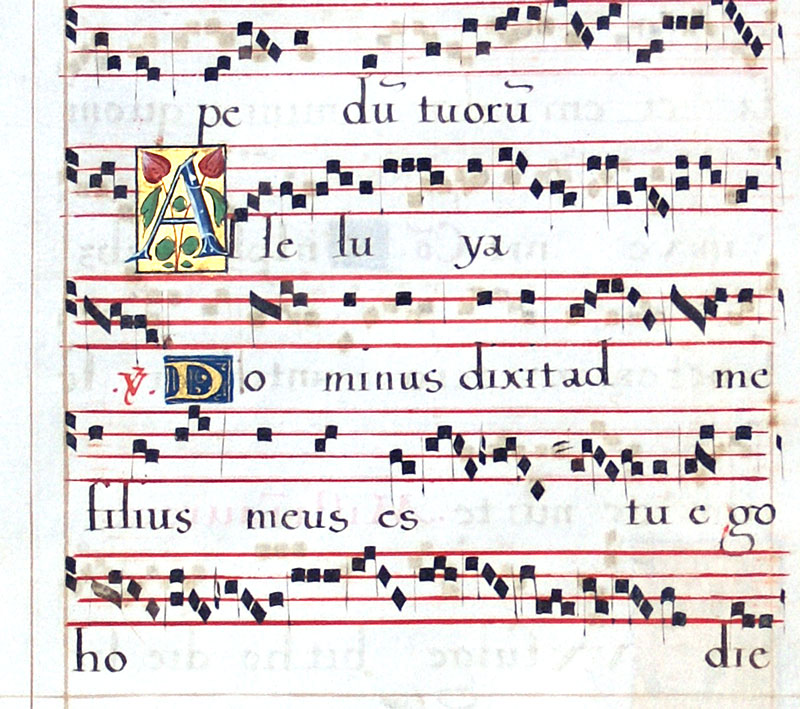 pe dū tuorū
Ale lu ya
.℣. Do minus dixit ad me
filius meus es tu e go
ho die